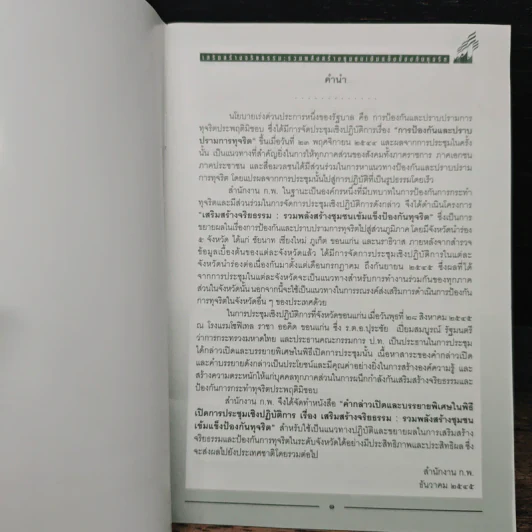 เสริมสร้างจริยธรรม : รวมพลังสร้างชุมชนเข้มแข็งป้องกันทุจริต
คำนำ
นโยบายเร่งด่วนประการหนึ่งของรัฐบาล คือ การป้องกันและปราบปรามการ
ทุจริตประพฤติมิชอบ ซึ่งได้มีการจัดประชุมเชิงปฏิบัติการเรื่อง "การป้องกันและปราบ
ปรามการทุจริต" ขึ้นเมื่อวันที่ ๒๓ พฤศจิกายน ๒๕๔๔ และผลจากการประชุมในครั้ง
นั้น เป็นแนวทางที่สำคัญยิ่งในการให้ทุกภาคส่วนของสังคมทั้งภาคราชการ ภาคเอกชน
ภาคประชาชน และสื่อมวลชนได้มีส่วนร่วมในการหาแนวทางป้องกันและปราบปรามการ
ทุจริต โดยแปรผลจากการประชุมนั้นไปสู่การปฏิบัติที่เป็นรูปธรรมโดยเร็ว
สำนักงาน ก.พ. ในฐานะเป็นองค์กรหนึ่งที่มีบทบาทในการป้องกันการกระทำ
ทุจริตและมีส่วนร่วมในการจัดการประชุมเชิงปฏิบัติการดังกล่าว จึงได้ดำเนินโครงการ
"เสริมสร้างจริยธรรม : รวมพลังสร้างชุมชนเข้มแข็งป้องกันทุจริต" ซึ่งเป็นการ
ขยายผลในเรื่องการป้องกันและปราบปรามการทุจริตไปสู่ส่วนภูมิภาค โดยมีจังหวัดนำร่อง
๕ จังหวัด ได้แก่ ชัยนาท เชียงใหม่ ภูเก็ต ขอนแก่น และนราธิวาส ภายหลังจากสำรวจ
ข้อมูลเบื้องต้นของแต่ละจังหวัดแล้ว ได้มีการจัดการประชุมเชิงปฏิบัติการในแต่ละ
จังหวัดนำร่องต่อเนื่องกันมาตั้งแต่เดือนกรกฎาคม ถึงกันยายน ๒๕๔๕ ซึ่งผลที่ได้
จากการประชุมในแต่ละจังหวัดจะเป็นแนวทางสำหรับการทำงานร่วมกันของทุกภาค
ส่วนในจังหวัดนั้นนอกจากนี้จะใช้เป็นแนวทางในการรณรงค์ส่งเสริมการดำเนินการป้องกัน
การทุจริตในจังหวัดอื่น ๆ ของประเทศด้วย
ในการประชุมเชิงปฏิบัติการที่จังหวัดขอนแก่น เมื่อวันพุธที่ ๒๘ สิงหาคม ๒๕๔๕
ณ โรงแรมโซฟิเทล ราชา ออคิด ขอนแก่น ซึ่ง ร.ต.อ.ปุระชัย เปี่ยมสมบูรณ์ รัฐมนตรี
ว่าการกระทรวงมหาดไทย และประธานคณะกรรมการ ป.ท. เป็นประธานในการประชุม
ได้กล่าวเปิดและบรรยายพิเศษในพิธีเปิดการประชุมนั้น เนื้อหาสาระของคำกล่าวเปิด
และคำบรรยายดังกล่าวเป็นประโยชน์และมีคุณค่าอย่างยิ่งในการสร้างองค์ความรู้ และ
สร้างความตระหนักให้แก่บุคคลทุกภาคส่วนในการผนึกกำลังกันเสริมสร้างจริยธรรมและ
ป้องกันการกระทำทุจริตประพฤติมิชอบ
สำนักงาน ก.พ. จึงได้จัดทำหนังสือ "คำกล่าวเปิดและบรรยายพิเศษในพิธี
เปิดการประชุมเชิงปฏิบัติการ เรื่อง เสริมสร้างจริยธรรม : รวมพลังสร้างชุมชน
เข้มแข็งป้องกันทุจริต" สำหรับใช้เป็นแนวทางปฏิบัติและขยายผลในการเสริมสร้าง
จริยธรรมและป้องกันการทุจริตในระดับจังหวัดได้อย่างมีประสิทธิภาพและประสิทธิผล ซึ่ง
จะส่งผลไปยังประเทศชาติโดยรวมต่อไป
สำนักงาน ก.พ.
ธันวาคม ๒๕๔๕